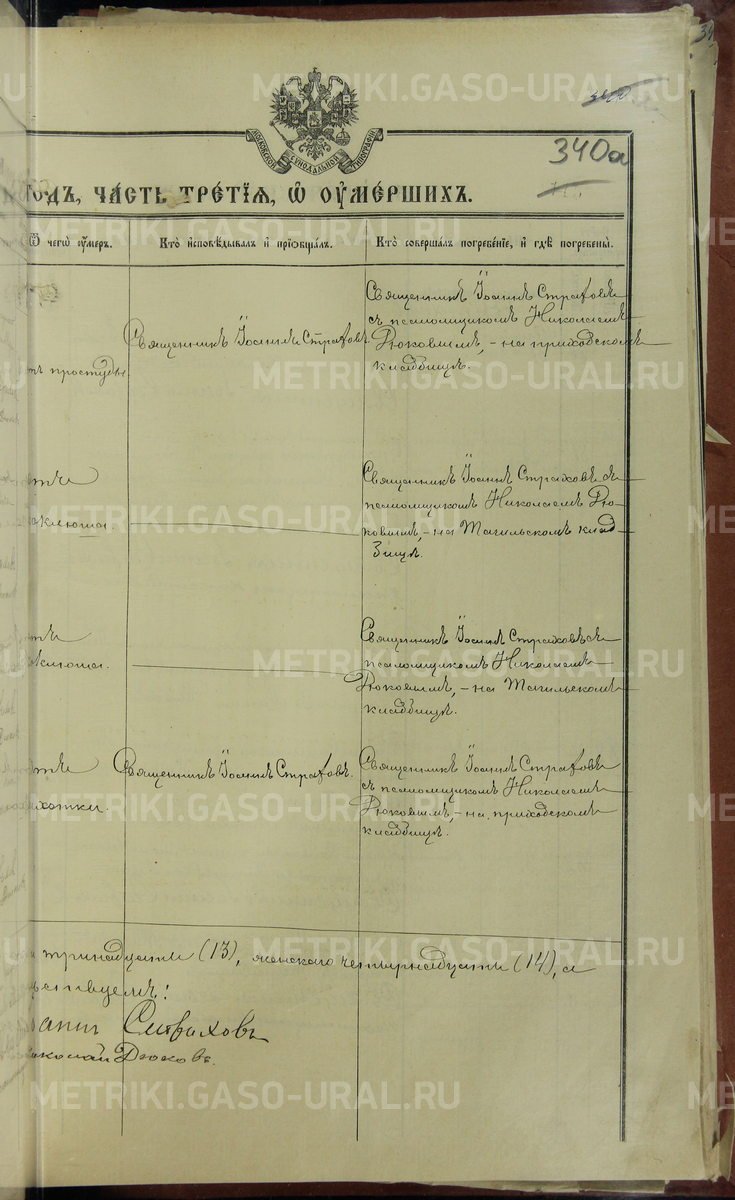 340а
МОСКОВСКОЙ СѴНОДАЛЬНОЙ ТИПОГРАФІИ
ГОДЪ, ЧАСТЬ ТРЕТІѦ, Ѡ ОУМЕРШИХЪ.
Ѿ чегѡ оумеръ.
Кто исповѣдывалъ и прїобщалъ.
Кто совершалъ погребенїе, и гдѣ погребены.
простуды
Священникъ Іоаннъ Страховъ.
Священникъ Іоаннъ Страховъ
съ псаломщикомъ Николаемъ
Дюковымъ, - на приходскомъ
кладбищѣ.
Священникъ Іоаннъ Страховъ съ
псаломщикомъ Николаемъ Дю-
ковымъ, - на Тагильскомъ клад-
бищѣ.
Священникъ Іоаннъ Страховъ съ
псаломщикомъ Николаемъ
Дюковымъ, - на Тагильскомъ
кладбищѣ.
Священникъ Іоаннъ Страховъ.
Священникъ Іоаннъ Страховъ
съ псаломщикомъ Николаемъ
Дюковымъ, - на приходскомъ
кладбищѣ.
тринадцати (13), женскаго четырнадцати (14), а
Страховъ
Дюковъ.
METRIKI.GASO-URAL.RU